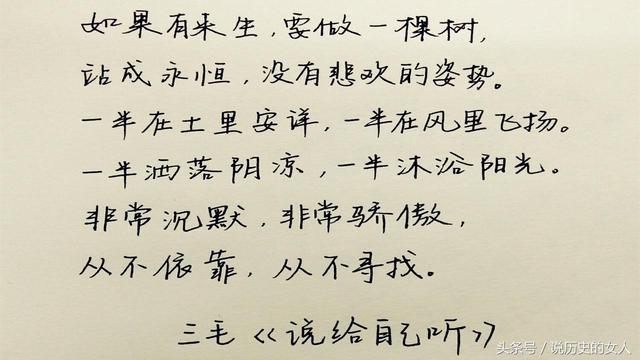 如果有来生,要做一棵树,
站成永恒,没有悲欢的姿势。
一半在土里安详,一半在风里飞扬。
一半洒落阴凉,一半沐浴阳光。
非常沉默,非常骄傲,
从不依靠,从不寻找。
三毛《说给自己听》
头条号/说历史的女人